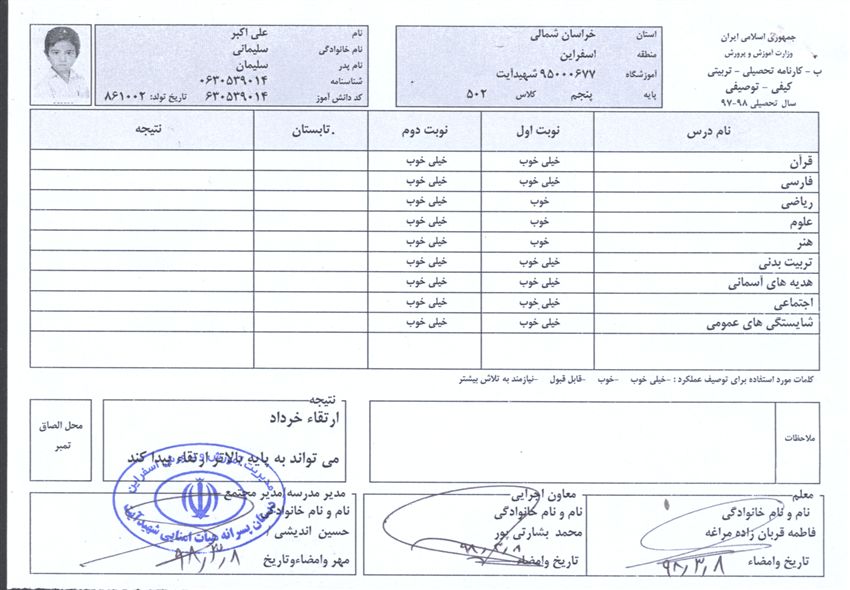 جمهوری اسلامی ایران
وزارت آموزش و پرورش
ب - کارنامه تحصیلی - تربیتی
کیفی - توصیفی
سال تحصیلی ۹۸-۹۷
استان خراسان شمالی
منطقه اسفراین
آموزشگاه ۹۵۰۰۰۶۷۷ شهیدآیت
پایه پنجم کلاس ۵۰۲
نام علی اکبر
نام خانوادگی سلیمانی
نام پدر سلیمان
شناسنامه ۰۶۳۰۵۳۹۰۱۴
کد دانش آموز ۶۳۰۵۳۹۰۱۴ تاریخ تولد: ۸۶۱۰۰۲
نام درس نوبت اول نوبت دوم تابستان نتیجه
قرآن خیلی خوب خیلی خوب
فارسی خیلی خوب خیلی خوب
ریاضی خوب خیلی خوب
علوم خوب خیلی خوب
هنر خوب خیلی خوب
تربیت بدنی خیلی خوب خیلی خوب
هدیه های آسمانی خیلی خوب خیلی خوب
اجتماعی خیلی خوب خیلی خوب
شایستگی های عمومی خیلی خوب خیلی خوب
کلمات مورد استفاده برای توصیف عملکرد : -خیلی خوب -خوب -قابل قبول -نیازمند به تلاش بیشتر
ملاحظات
نتیجه
ارتقاء خرداد
می تواند به پایه بالاتر ارتقاء پیدا کند
محل الصاق
تمبر
معلم
نام و نام خانوادگی
فاطمه قربان زاده مراغه
تاریخ وامضاء
۹۸,۳,۸
معاون اجرایی
نام و نام خانوادگی
محمد بشارتی پور
تاریخ وامضاء
۹۸,۳,۸
مدیر مدرسه/مدیر مجتمع
نام و نام خانوادگی
حسین اندیشی
مهر وامضاءوتاریخ
۹۸,۳,۸
مدیریت آموزش و پرورش اسفراین
دبستان پسرانه هیات امنایی شهید آیت